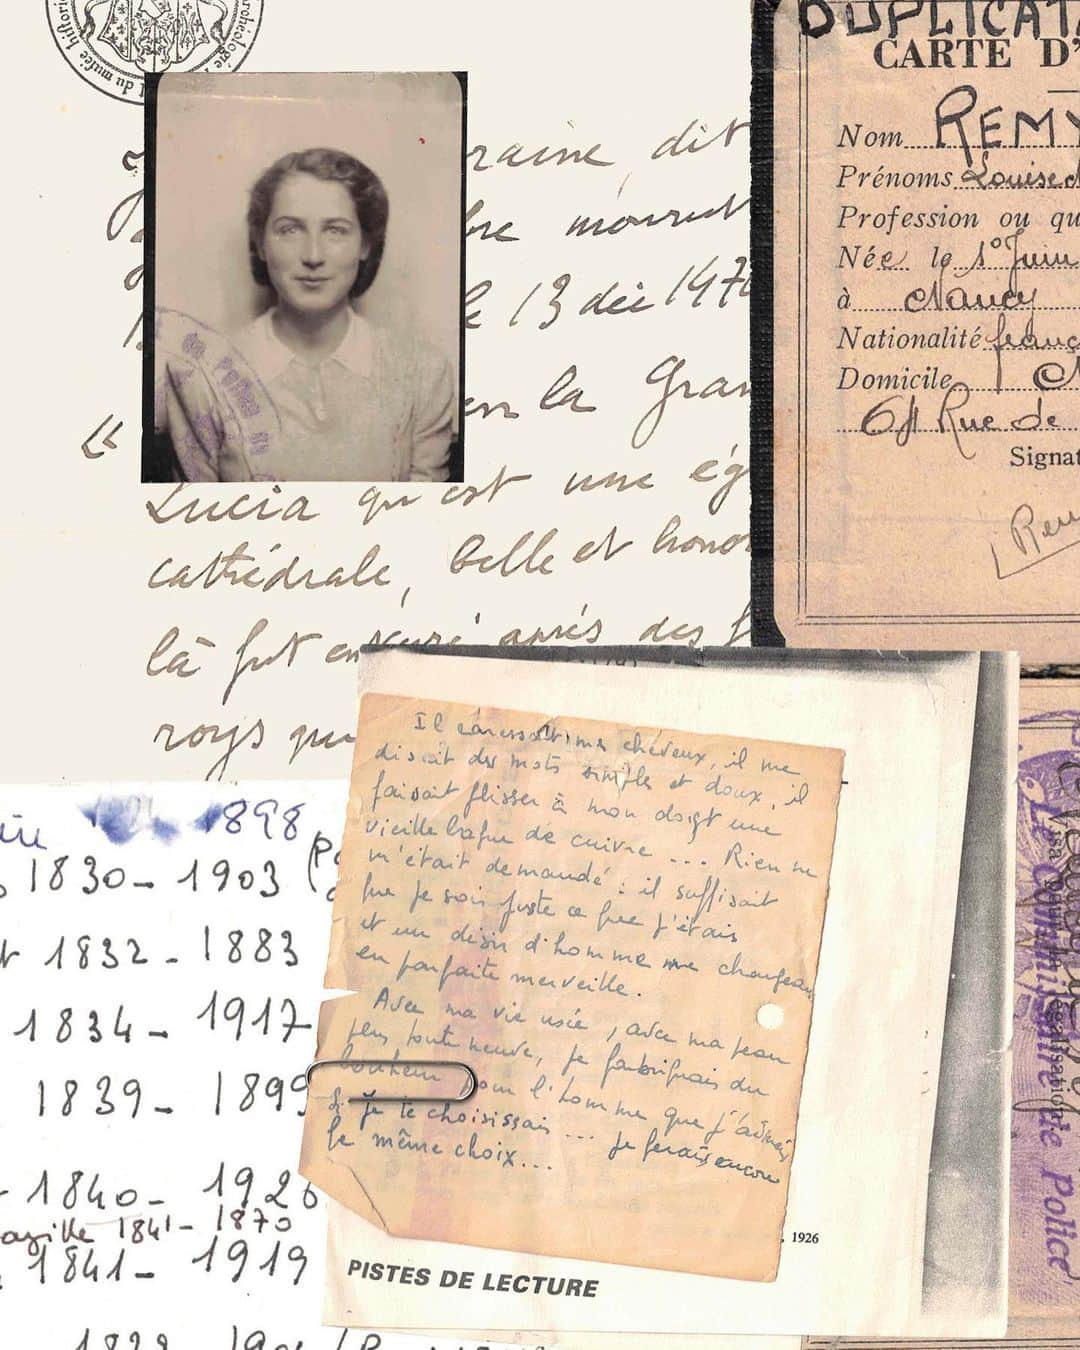 raine, dit
bre mourut
le 13 déc 1470
en la Gran
«
Lucia qu'est une ég
cathédrale, belle et honor
là fut enturé après des f
roys qu
DUPLICATA
CARTE D'
Nom REMY
Prénoms Louise
Profession ou qu
Née le 1° Juin
à Nancy
Nationalité franç
Domicile
64 Rue de
Signat
Rem
1898
1830 - 1903
1832 - 1883
1834 - 1917
1839 - 1899
1840 - 1926
1841 - 1870
1841 - 1919
Il caressait mes cheveux, il me
disait des mots simples et doux, il
faisait glisser à mon doigt une
vieille bague de cuivre ... Rien ne
m'était demandé : il suffisait
que je sois juste ce que j'étais
et un désir d'homme me changeait
en parfaite merveille.
Avec ma vie usée, avec ma peau
plus toute neuve, je fabriquais du
bonheur pour l'homme que j'aimais
Si je te choisissais ... je ferais encore
le même choix...
, 1926
PISTES DE LECTURE
Le Commissaire de Police